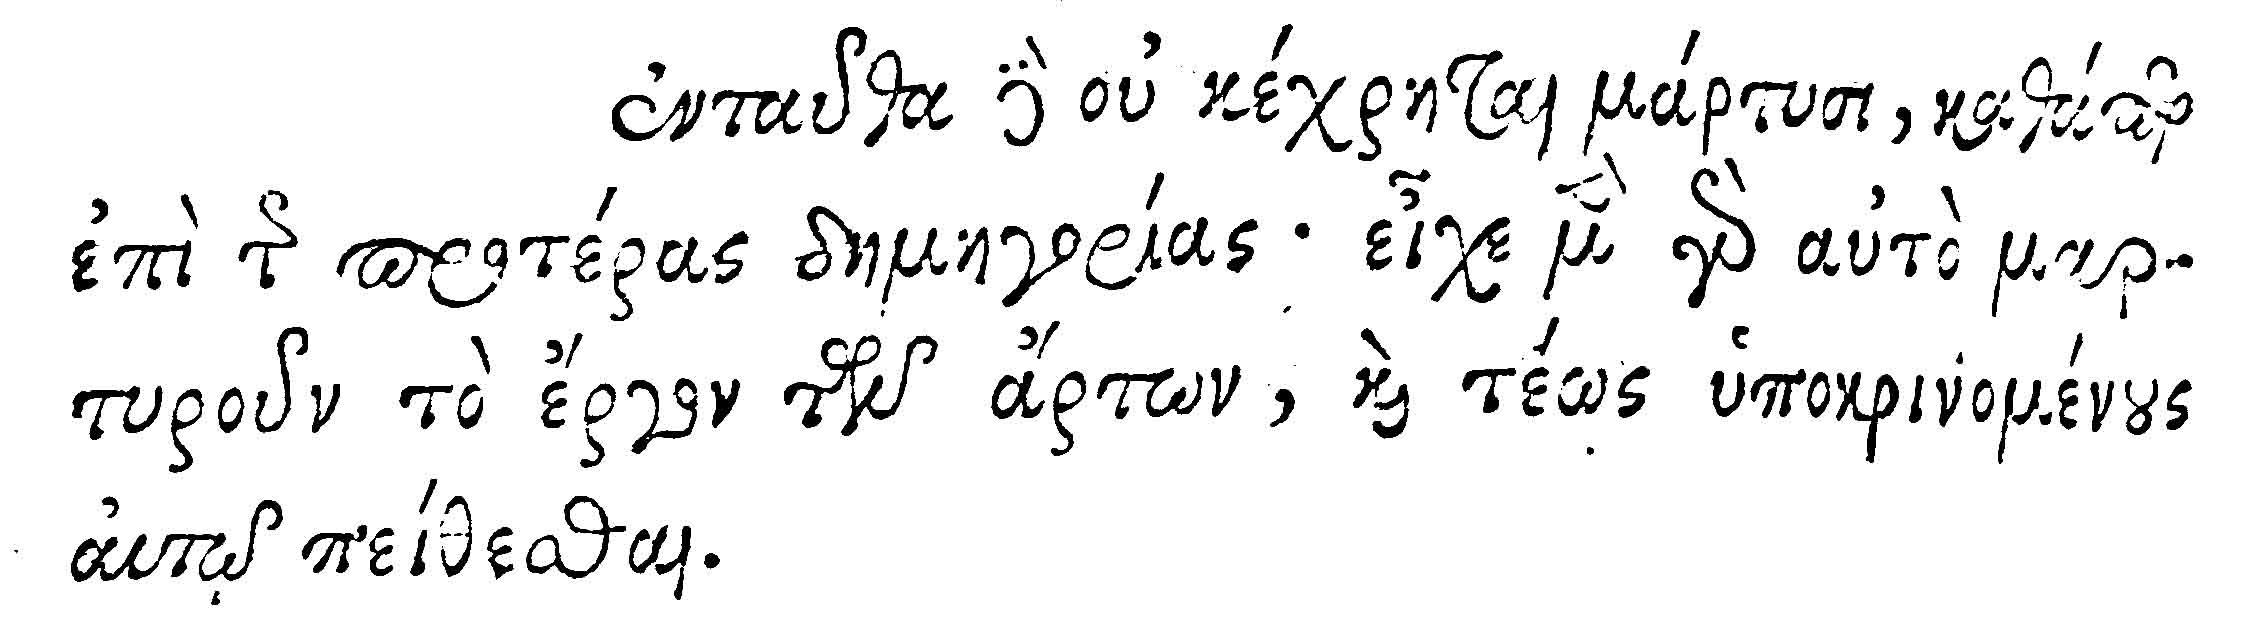 ἐνταῦθα δὲ οὐ κέχρηται μάρτυσι, καθάπερ
ἐπὶ τῆς προτέρας δημηγορίας· εἶχε μὲν γὰρ αὐτὸ μαρ-
τυροῦν τὸ ἔργον τῶν ἄρτων, καὶ τέως ὑποκρινομένους
αὐτῷ πείθεσθαι.